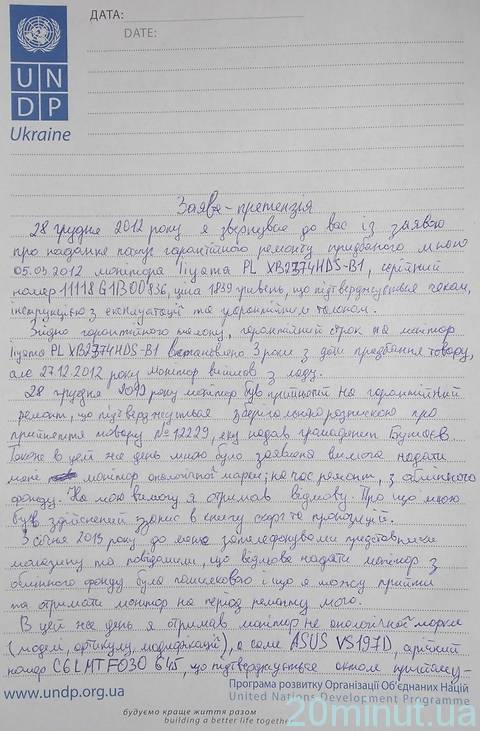 ДАТА:
DATE:
UN
DP
Ukraine
Заява-претензія
28 грудня 2012 року я звернувся до вас із заявою
про надання послуг гарантійного ремонту придбаного мною
05.03.2012 монітора Iiyama PL XB2374HDS-B1, серійний
номер 11118G1B00836, ціна 1839 гривень, що підтверджується чеком,
інструкцією з експлуатації та гарантійним талоном.
Згідно гарантійного талону, гарантійний строк на монітор
Iiyama PL XB2374HDS-B1 встановлено 3 роки з дати придбання товару,
але 27.12.2012 року монітор вийшов з ладу.
28 грудня 2012 року монітор був прийнятий на гарантійний
ремонт, що підтверджується розпискою про
прийняття товару №12229, яку надав громадянин
Також в цей же день мною було заявлена вимога надати
мені монітор аналогічної марки, на час ремонту, з обмінного
фонду. На мою вимогу я отримав відмову. Про що мною
був здійснений запис в книгу скарг та пропозицій.
3 січня 2013 року, до мене зателефонували представники
магазину та повідомили, що відмова надати монітор з
обмінного фонду була помилковою і що я можу прийти
та отримати монітор на період ремонту мого.
В цей же день я отримав монітор не аналогічної марки
(моделі, артикулу, модифікації), а саме ASUS VS197D, серійний
номер C6LMTF030645, що підтверджується актом
www.undp.org.ua
Програма розвитку Організації Об'єднаних Націй
United Nations Development Programme
будуємо краще життя разом
building a better life together
20minut.ua